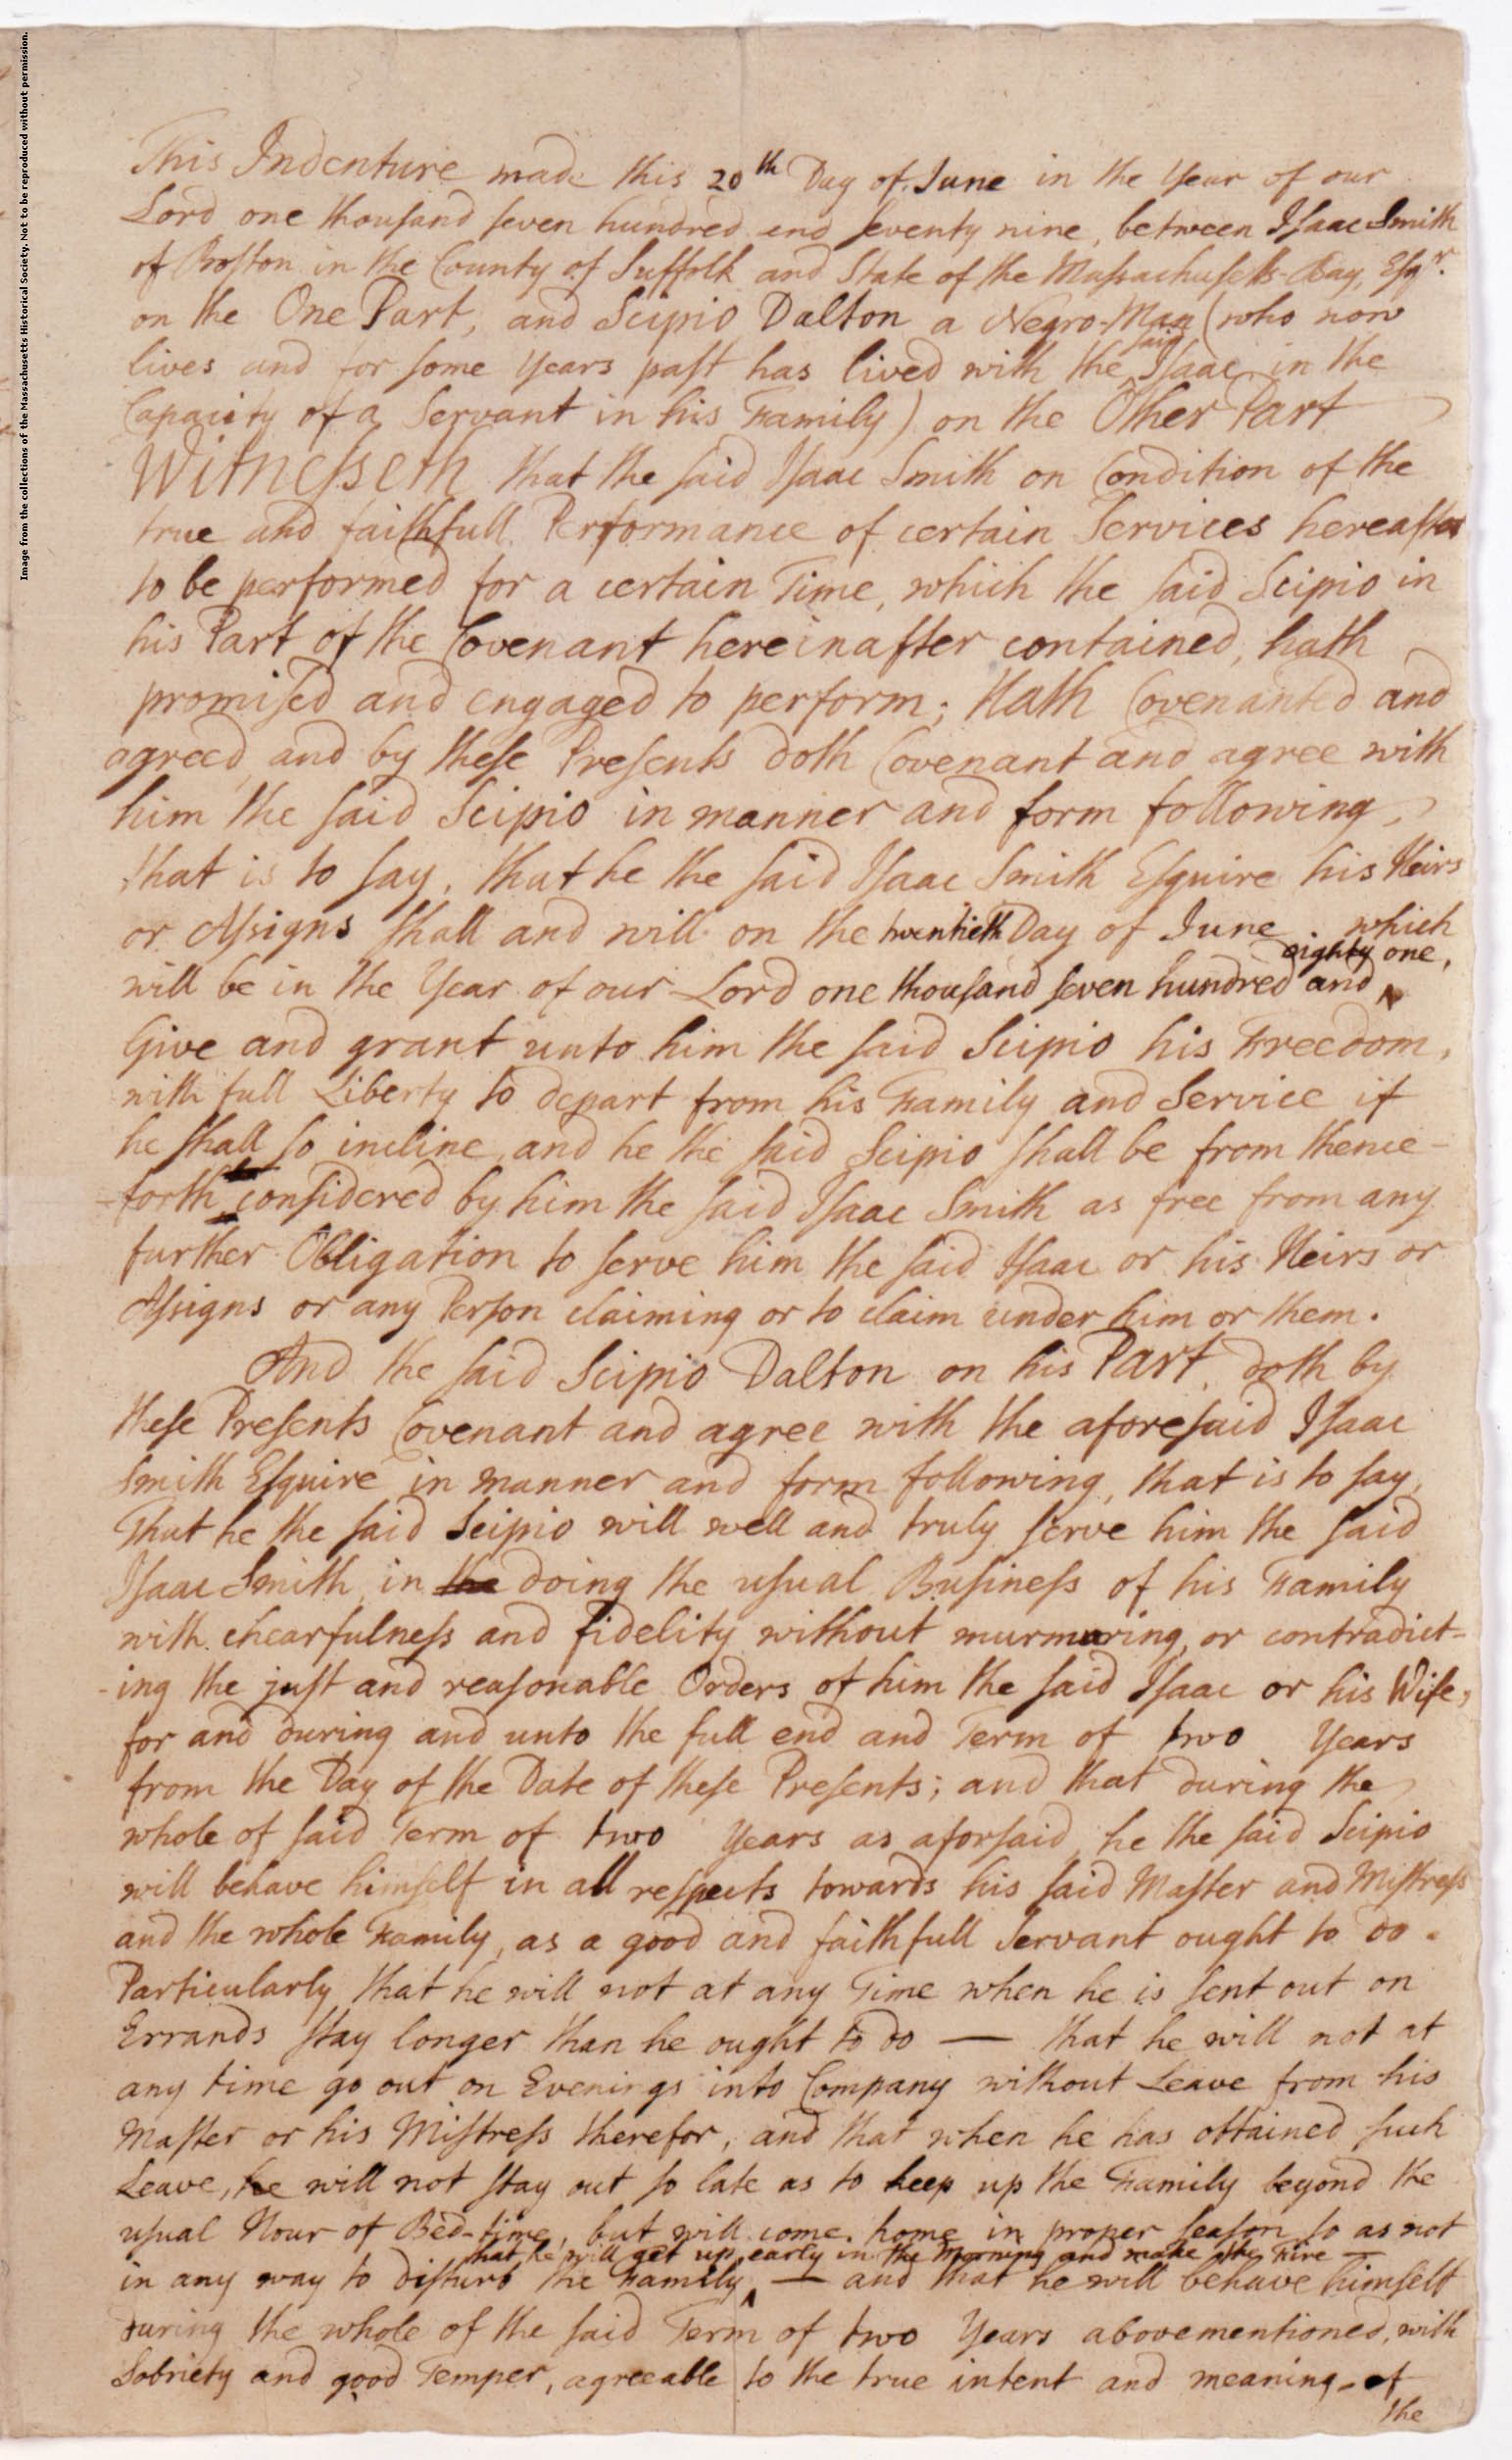 Image from the collections of the Massachusetts Historical Society. Not to be reproduced without permission.
This Indenture made this 20th Day of June in the Year of our
Lord one thousand seven hundred and seventy nine, between Isaac Smith
of Boston in the County of Suffolk and State of the Massachusetts-Bay, Esqr.
on the One Part, and Scipio Dalton a Negro-Man (who now
lives and for some Years past has lived with the said Isaac in the
Capacity of a Servant in his Family) on the Other Part
Witnesseth that the said Isaac Smith on Condition of the
true and faithfull Performance of certain Services hereafter
to be performed for a certain Time, which the said Scipio in
his Part of the Covenant hereinafter contained, hath
promised and engaged to perform; Hath Covenanted and
agreed, and by these Presents doth Covenant and agree with
him the said Scipio in manner and form following,
that is to say, that he the said Isaac Smith Esquire his Heirs
or Assigns shall and will on the twentieth Day of June which
will be in the Year of our Lord one thousand seven hundred and eighty one,
Give and grant unto him the said Scipio his Freedom,
with full Liberty to depart from his Family and Service if
he shall so incline, and he the said Scipio shall be from thence-
-forth considered by him the said Isaac Smith as free from any
further Obligation to serve him the said Isaac or his Heirs or
Assigns or any Person claiming or to claim under him or them.
And the said Scipio Dalton on his Part, doth by
these Presents Covenant and agree with the aforesaid Isaac
Smith Esquire in manner and form following, that is to say,
That he the said Scipio will well and truly serve him the said
Isaac Smith, in the doing the usual Business of his Family
with chearfulness and fidelity without murmuring, or contradict-
-ing the just and reasonable Orders of him the said Isaac or his Wife,
for and during and unto the full end and Term of two Years
from the Day of the Date of these Presents; and that during the
whole of said Term of two Years as aforsaid, he the said Scipio
will behave himself in all respects towards his said Master and Mistress
and the whole Family, as a good and faithfull Servant ought to do.
Particularly that he will not at any Time when he is sent out on
Errands stay longer than he ought to do — that he will not at
any time go out on Evenings into Company without Leave from his
Master or his Mistress therefor, and that when he has obtained such
Leave, he will not stay out so late as to keep up the Family beyond the
usual Hour of Bed-time, but will come home in proper season so as not
in any way to disturb the Family, that he will get up early in the Morning and make the Fire — and that he will behave himself
during the whole of the said Term of two Years abovementioned, with
Sobriety and good Temper, agreeable to the true intent and meaning of
the